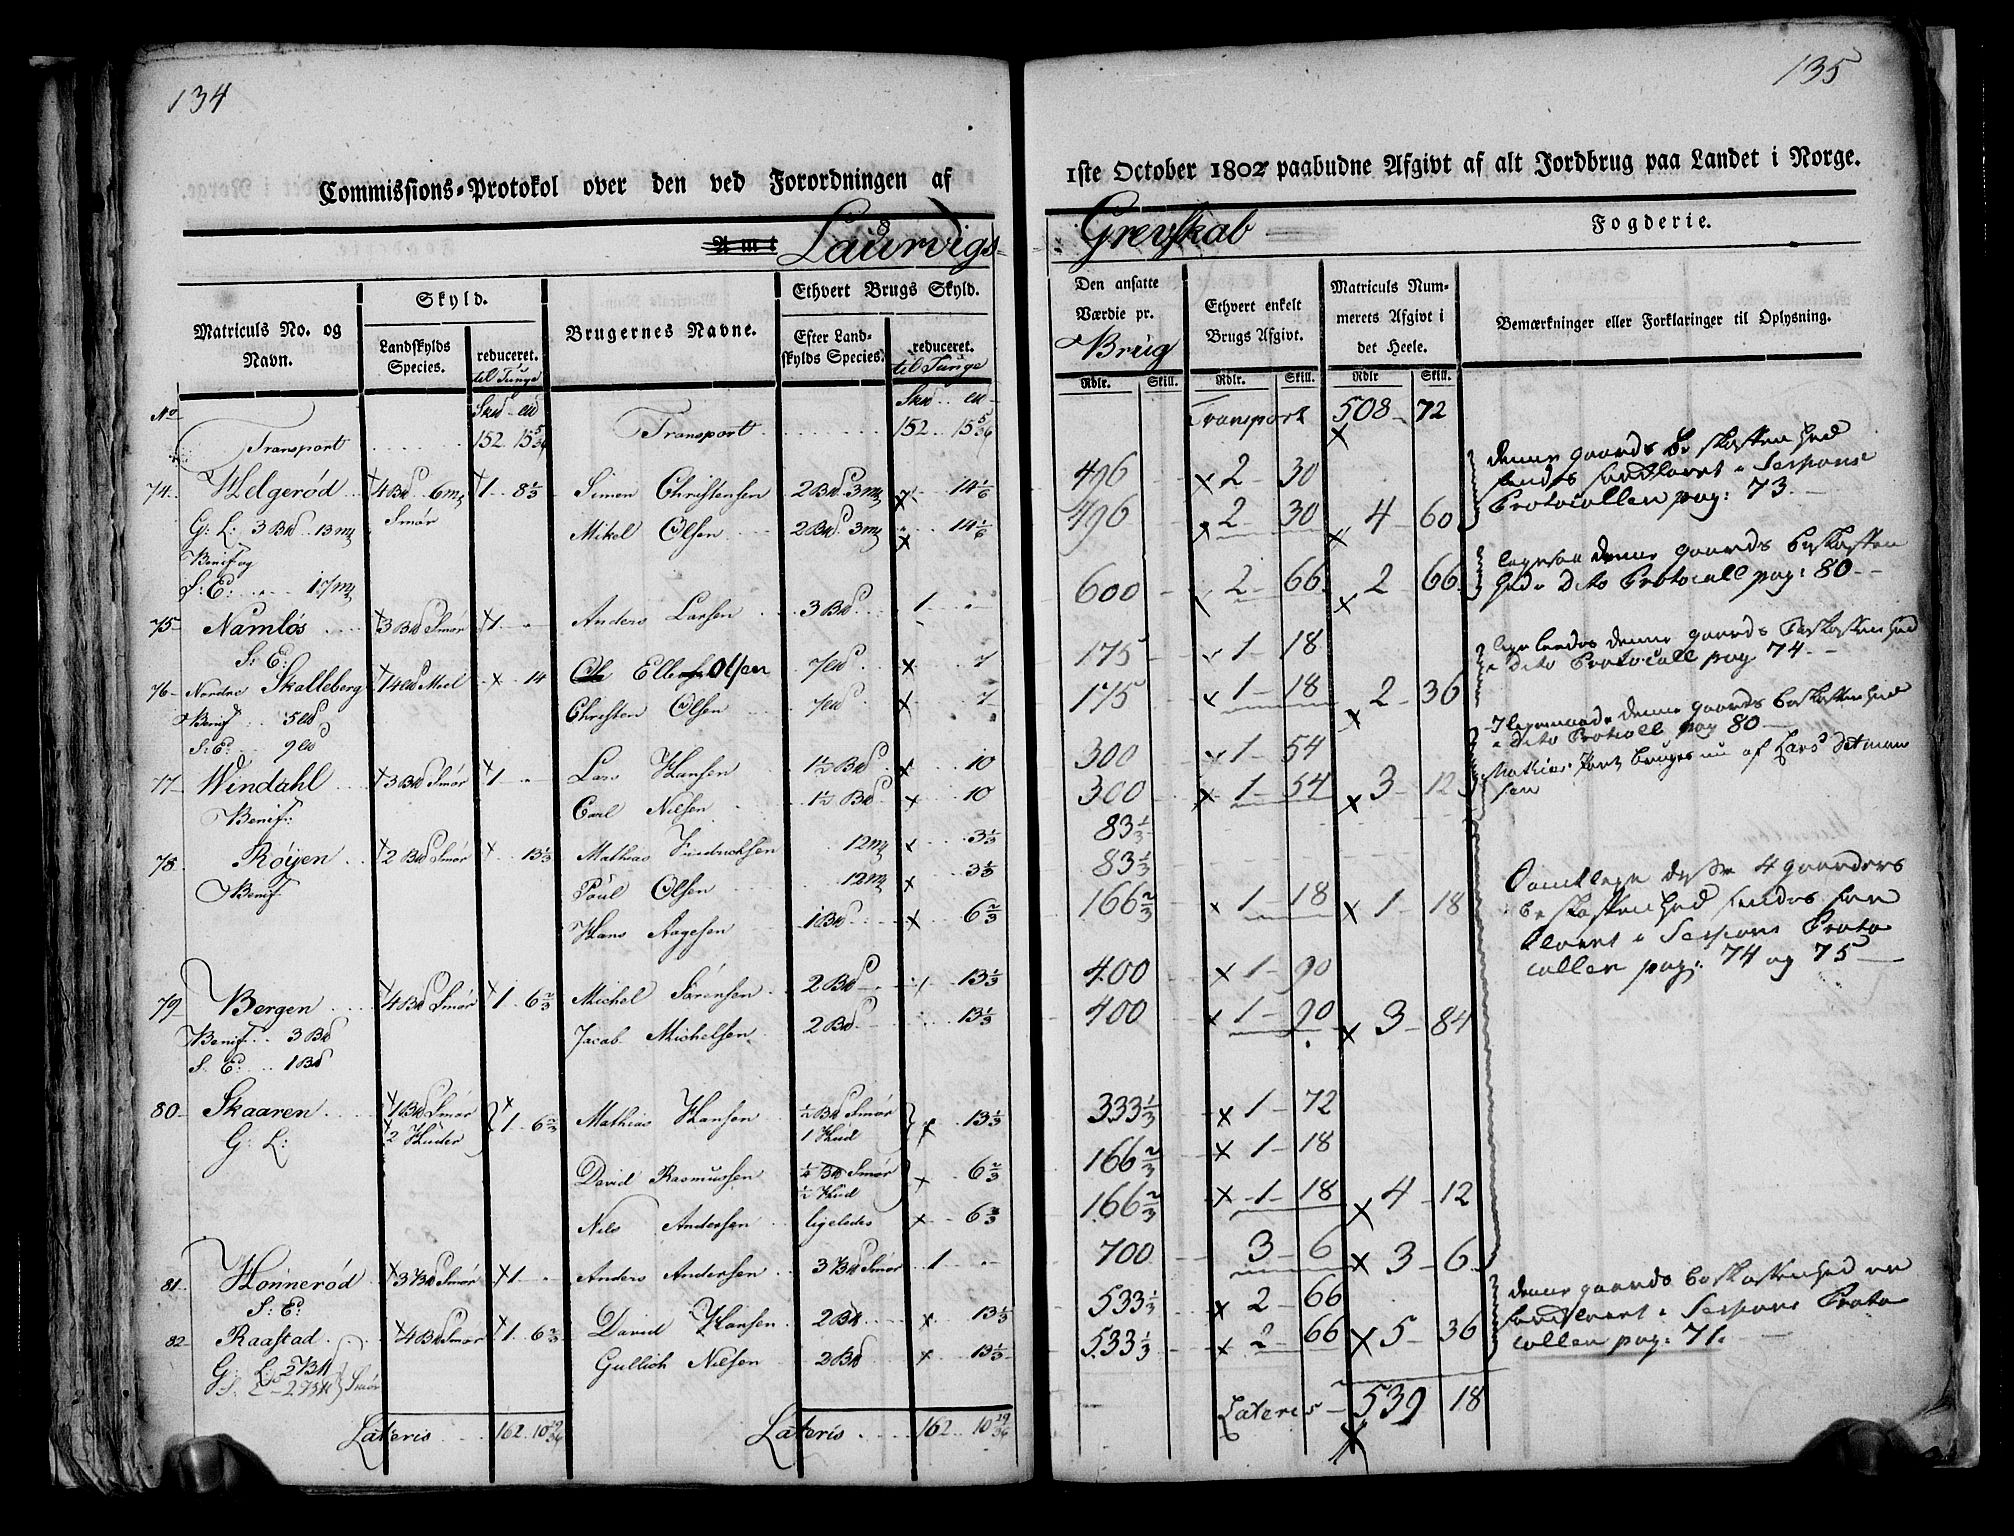 134
Commissions-Protokol over den ved Forordningen af
Amt Laurvigs-
Matriculs No. og Navn.
Skyld.
Landskylds Species.
reduceret. til Tunge
Brugernes Navne.
Ethvert Brugs Skyld.
Efter Landskylds Species.
reduceret. til Tunge
No
Transport 152 15 5/36 Transport 152 15 5/36
74 Helgerød 4 Bd 6 mk 1 8 1/3 Simen Christensen 2 Bd 3 mk 14 1/6
G: L: 3 Bd 13 mk Smør Mikel Olsen 2 Bd 3 mk 14 1/6
Benif og
S: E: 17 mk
75 Namløs 3 Bd Smør 1 Anders Larsen 3 Bd 1
S: E:
76 Nordre Skalleberg 14 Meel 14 Ole Olsen 7 7
Benif 5 Christen Olsen 7 7
S: E: 9
77 Windahl 3 Bd Smør 1 Lars Hansen 1 1/2 Bd 10
Benif: Carl Nilsen 1 1/2 Bd 10
78 Røyen 2 Bd Smør 13 1/3 Mathias Fredrichsen 12 mk 3 1/3
Benif Poul Olsen 12 mk 3 1/3
Hans Aagesen 1 Bd 6 2/3
79 Bergen 4 Bd Smør 1 6 2/3 Michel Sørensen 2 Bd 13 1/3
Benif 3 Bd Jacob Michelsen 2 Bd 13 1/3
S: E: 1 Bd
80 Skaaren 1 Bd Smør 2 Huder 1 6 2/3 Mathias Hansen 1/2 Bd Smør 1 Hud 13 1/3
G: L:
David Rasmussen 1/4 Bd Smør 1/2 Hud 6 2/3
Nils Andersen ligeledes 6 2/3
81 Hønnerød 3 Bd Smør 1 Anders Andersen 3 Bd Smør 1
S: E:
82 Raastad 4 Bd Smør 1 6 2/3 David Hansen 2 Bd 13 1/3
G: L: 2 Bd Gullich Nilsen 2 Bd 13 1/3
2 Bd Smør
Lateris 162 10 19/36 Lateris 162 10 19/36
135
1ste October 1802 paabudne Afgivt af alt Jordbrug paa Landet i Norge.
Grevskab Fogderie.
Den ansatte Værdie pr. Brug
Ethvert enkelt Brugs Afgivt.
Matriculs Nummerets Afgivt i det Heele.
Bemærkninger eller Forklaringer til Oplysning.
Rdlr. Skill. Rdlr. Skill. Rdlr Skill.
Transport 508 72
496 2 30
496 2 30 4 60
600 2 66 2 66
175 1 18
175 1 18 2 36
300 1 54
300 1 54 3 12
83 1/3
83 1/3
166 2/3 1 18 1 18
400 1 90
400 1 90 3 84
333 1/3 1 72
166 2/3 1 18
166 2/3 1 18 4 12
700 3 6 3 6
533 1/3 2 66
533 1/3 2 66 5 36
Lateris 539 18
denne gaards beskaffenhed
findes forklaret i Sessions
Protocollen pag: 73.
ligesaa denne gaards beskaffen
hed i dito Protocoll pag: 80
ligeledes denne gaards beskaffenhed
i dito Protocoll pag 74
denne gaards beskaffenhed
i dito Protocoll pag 80
Mathias Part bruges nu af Lars
sen
Samtlige disse 4 gaarders
beskaffenhed findes for
klaret i Sessions Proto
collen pag: 74 og 75
denne gaards beskaffenhed er
forklaret i Sessions Proto
collen pag: 71.